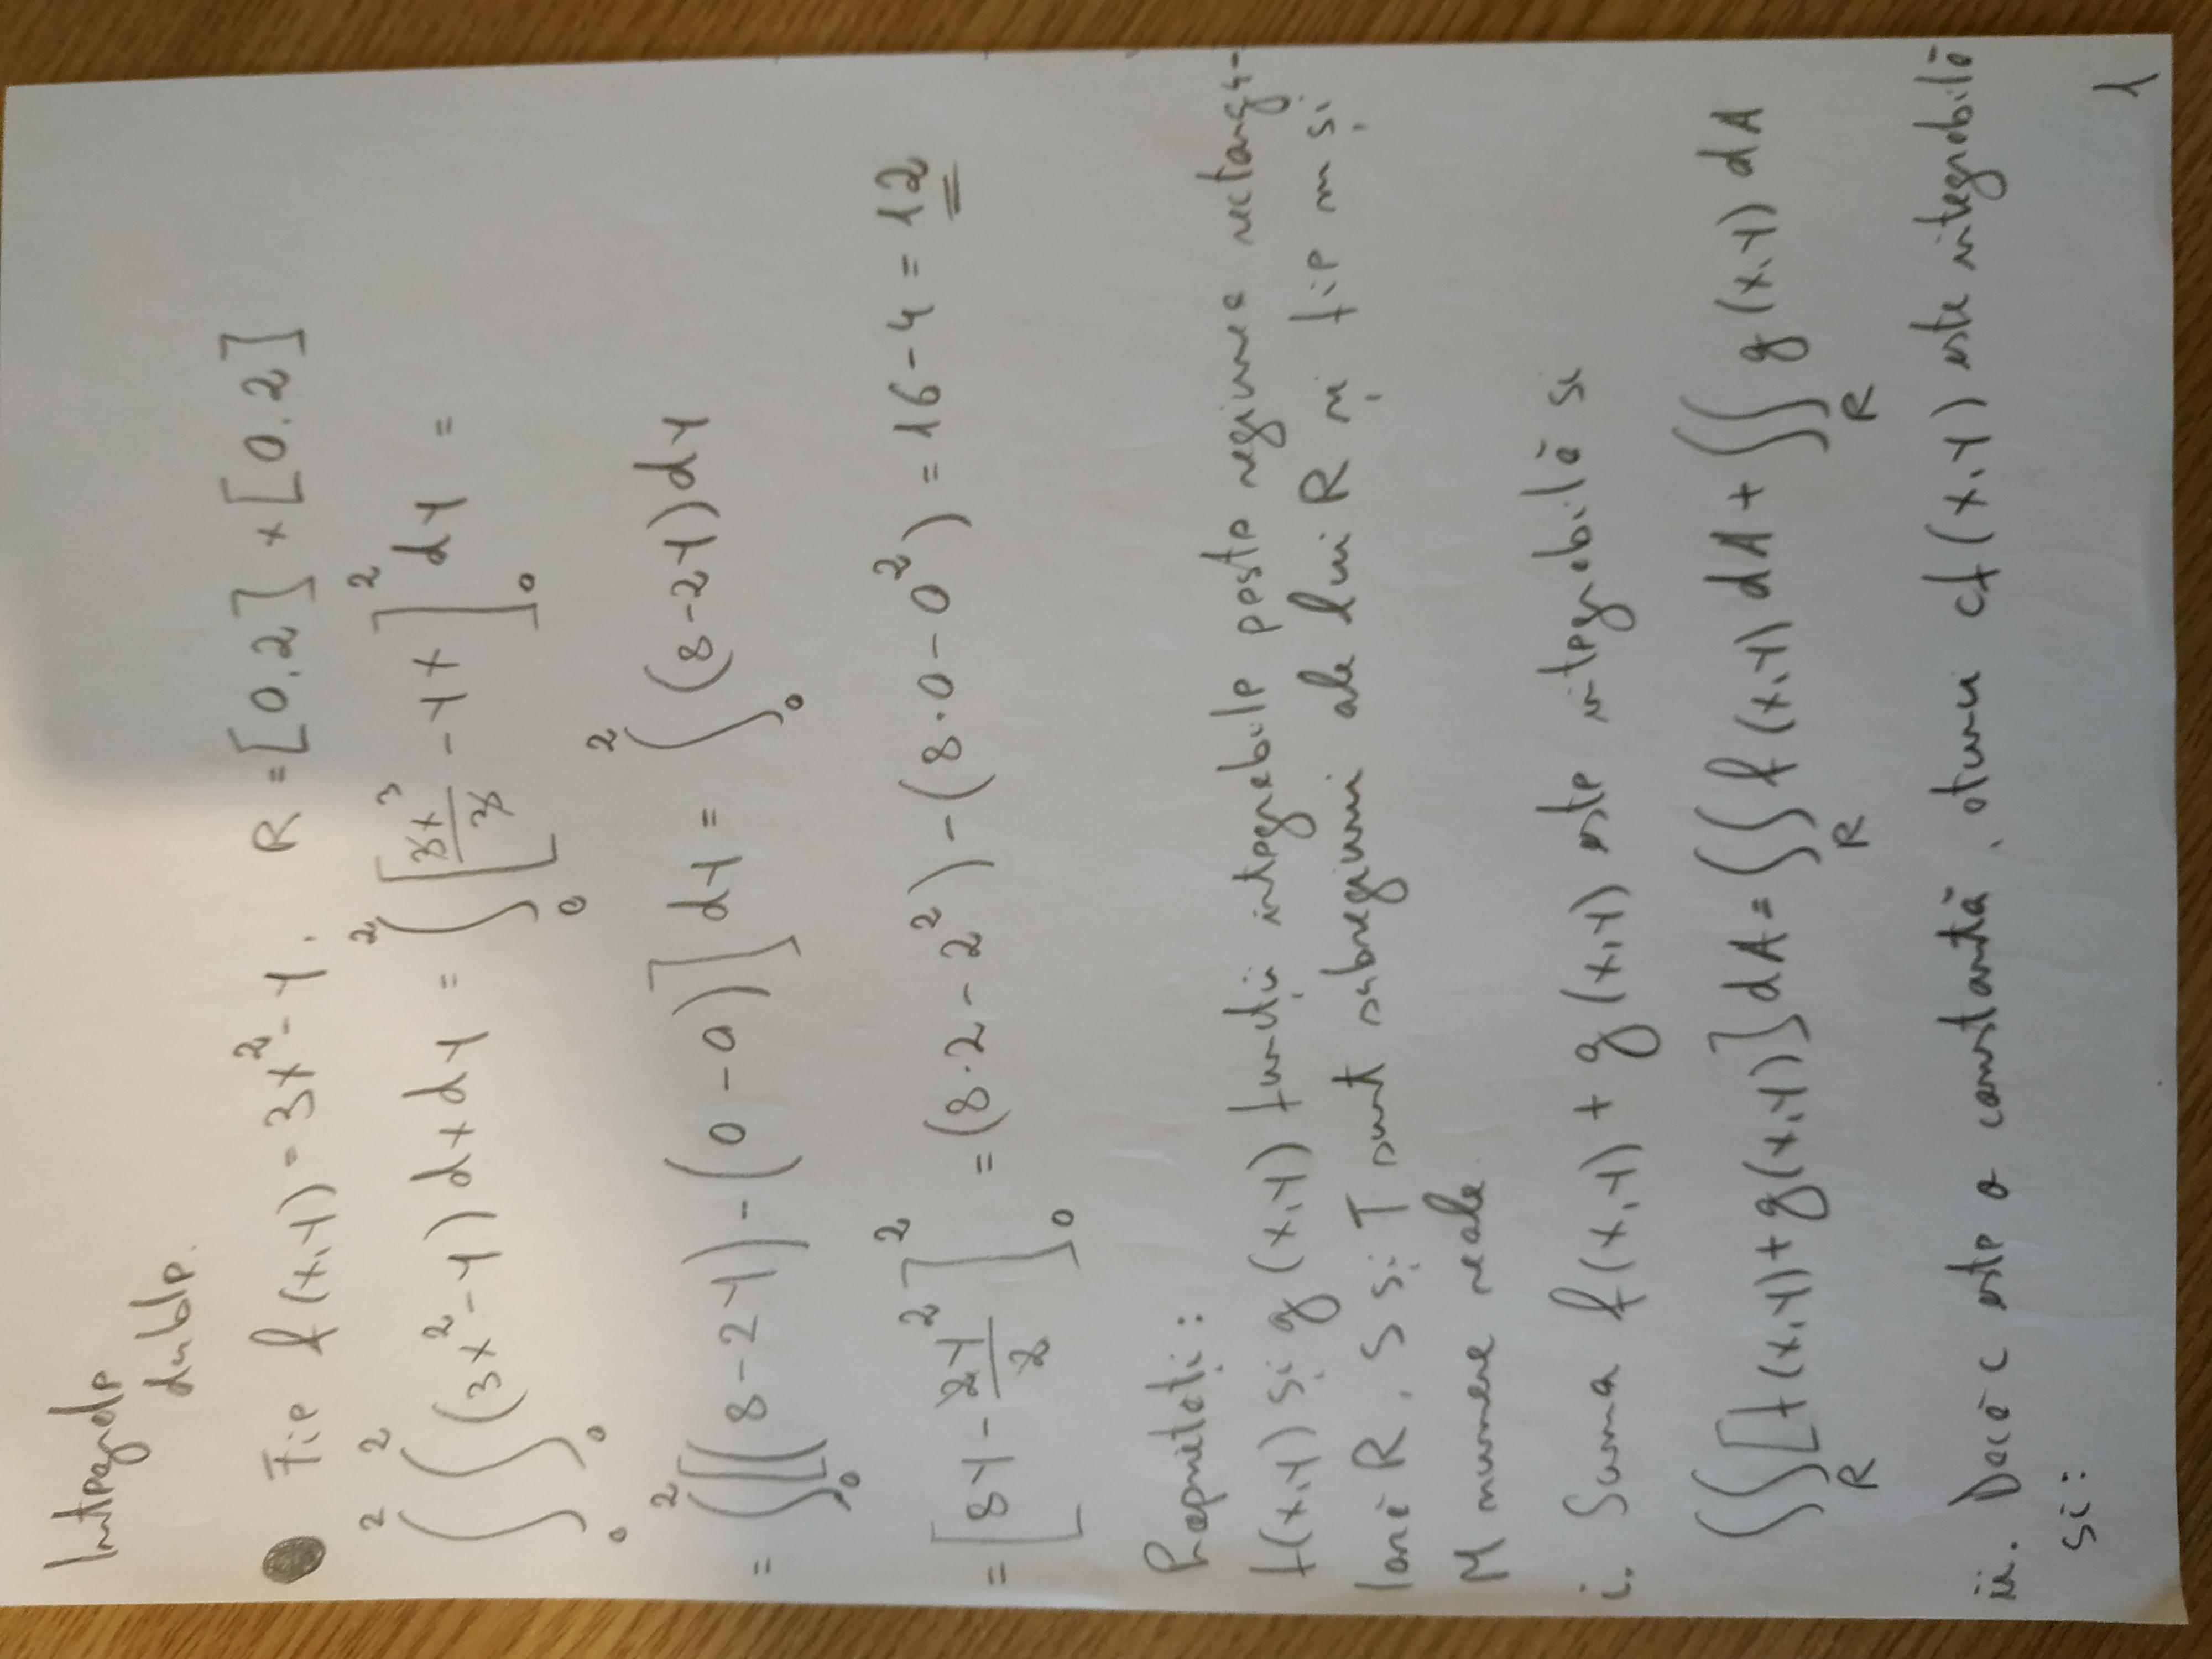 Integrale
duble.
Fie f(x,y) = 3x² - y, R = [0,2] × [0,2]
∫₀² ∫₀² (3x² - y) dx dy = ∫₀² [3x³/3 - yx]₀² dy =
= ∫₀² [(8 - 2y) - (0 - 0)] dy = ∫₀² (8 - 2y) dy
= [8y - 2y²/2]₀² = (8·2 - 2²) - (8·0 - 0²) = 16 - 4 = 12
Proprietăți:
f(x,y) și g(x,y) funcții integrabile peste regiunea rectangu-
lară R, S și T sunt subregiuni ale lui R și fie m și
M numere reale.
i. Suma f(x,y) + g(x,y) este integrabilă si
∬_R [f(x,y) + g(x,y)] dA = ∬_R f(x,y) dA + ∬_R g(x,y) dA
ii. Dacă c este o constantă, atunci cf(x,y) este integrabilă
si:
1